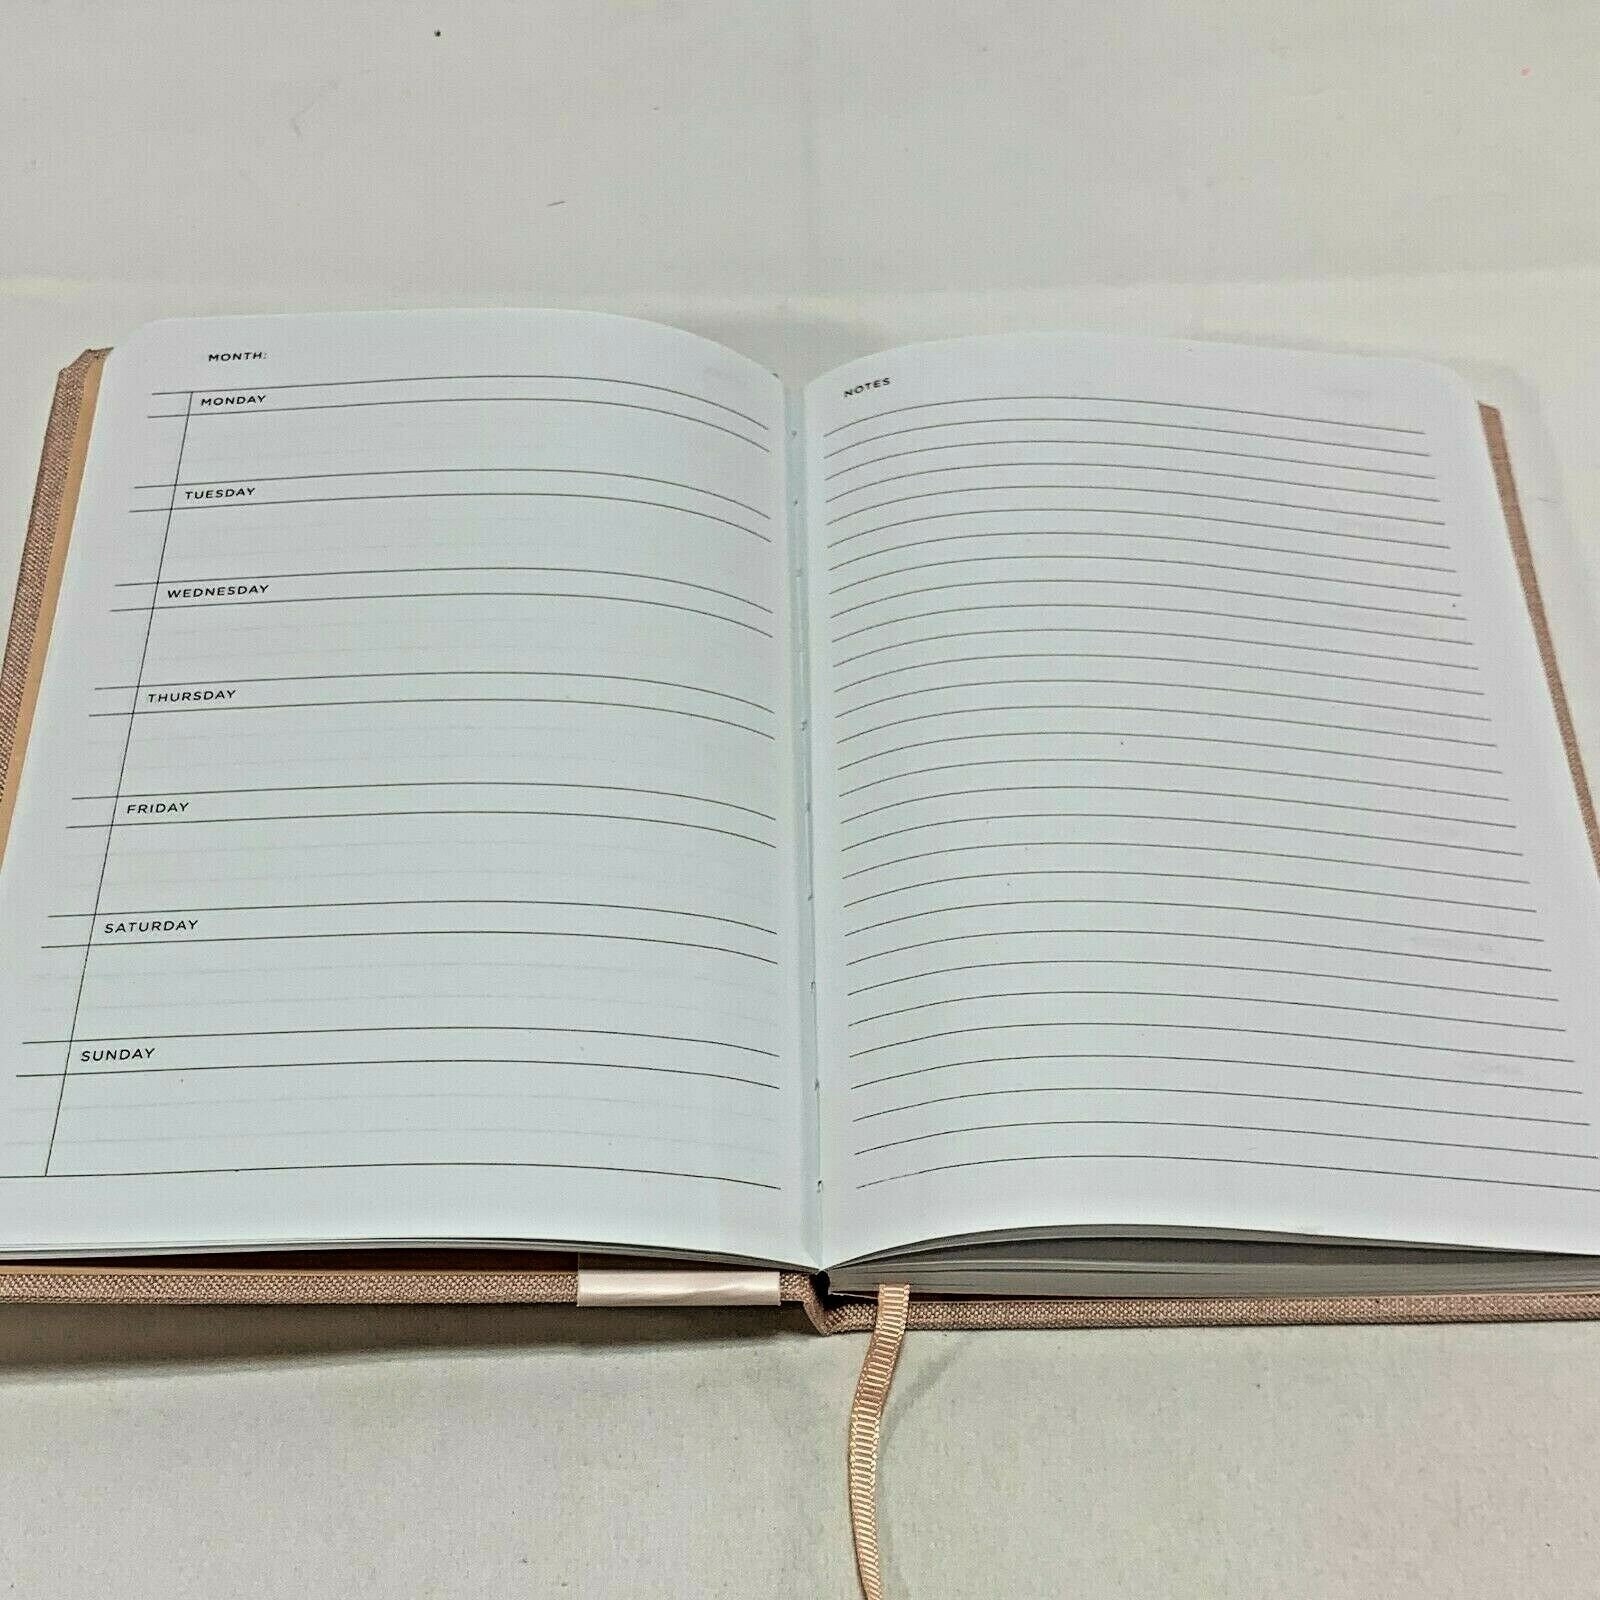 MONTH:
MONDAY
TUESDAY
WEDNESDAY
THURSDAY
FRIDAY
SATURDAY
SUNDAY
NOTES